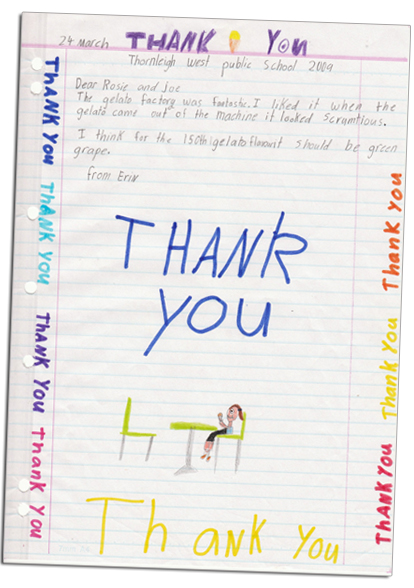 24 march THANK YOU
Thornleigh West public School 2009
Dear Rosie and Joe
The gelato factory was fantastic. I liked it when the
gelato came out of the machine it looked scrumtious.
I think for the 150th gelato flavour it should be green
grape.
from Erin
THANK YOU
THANK YOU
THANK YOU
Thank You
THANK
YOU
Thank You
Thank You
THANK YOU
Thank You